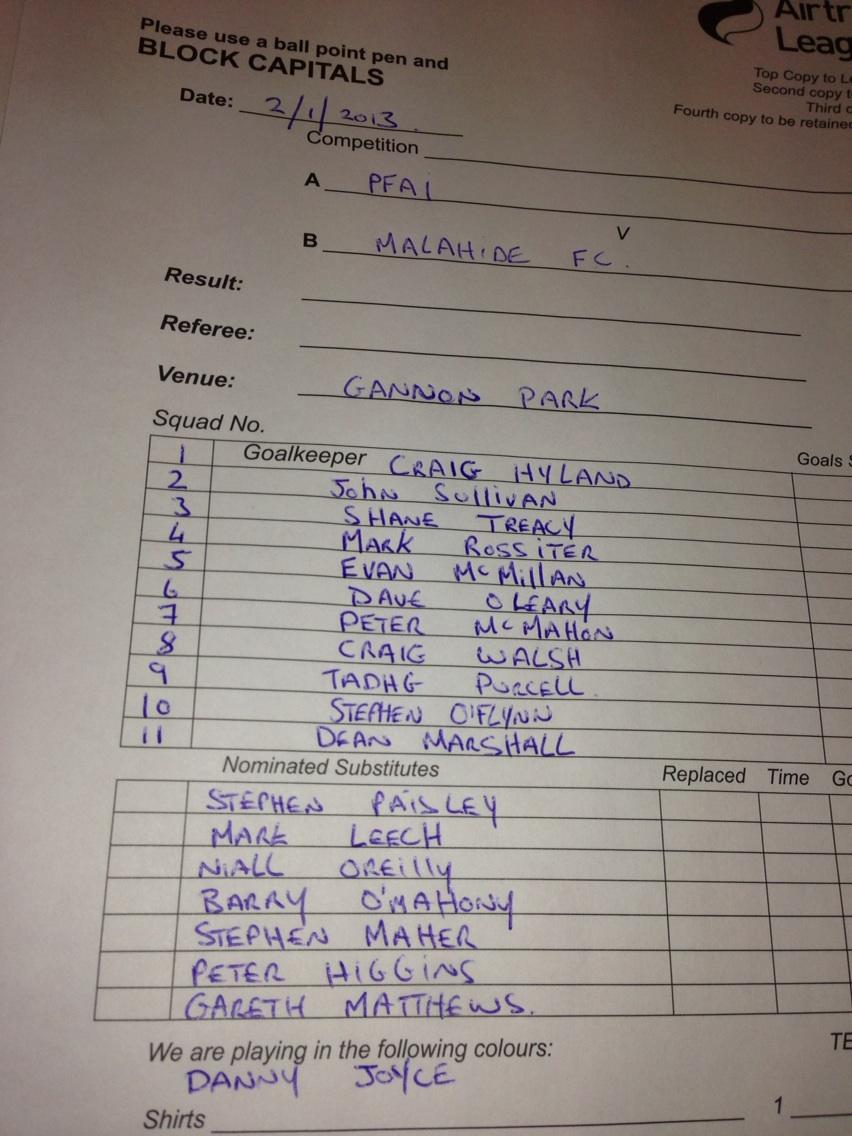 Please use a ball point pen and
BLOCK CAPITALS
Airtr
Leag
Top Copy to L
Second copy t
Third c
Fourth copy to be retaine
Date: 2/1/2013.
Competition
A PFAI
V
B MALAHIDE FC.
Result:
Referee:
Venue: GANNON PARK
Squad No.
Goals S
1 Goalkeeper CRAIG HYLAND
2 John SullivAN
3 SHANE TREACY
4 MARK ROSSiTER
5 EVAN McMillAN
6 DAVE OLEARY
7 PETER McMAHON
8 CRAIG WALSH
9 TADHG PURCELL
10 STEPHEN O'FLYNN
11 DEAN MARSHALL
Nominated Substitutes Replaced Time Go
STEPHEN PAiSLEY
MARK LEECH
NiALL OREilly
BARRY O'MAHONY
STEPHEN MAHER
PETER HIGGINS
GARETH MATTHEWS.
We are playing in the following colours: TE
DANNY JOYCE
Shirts 1